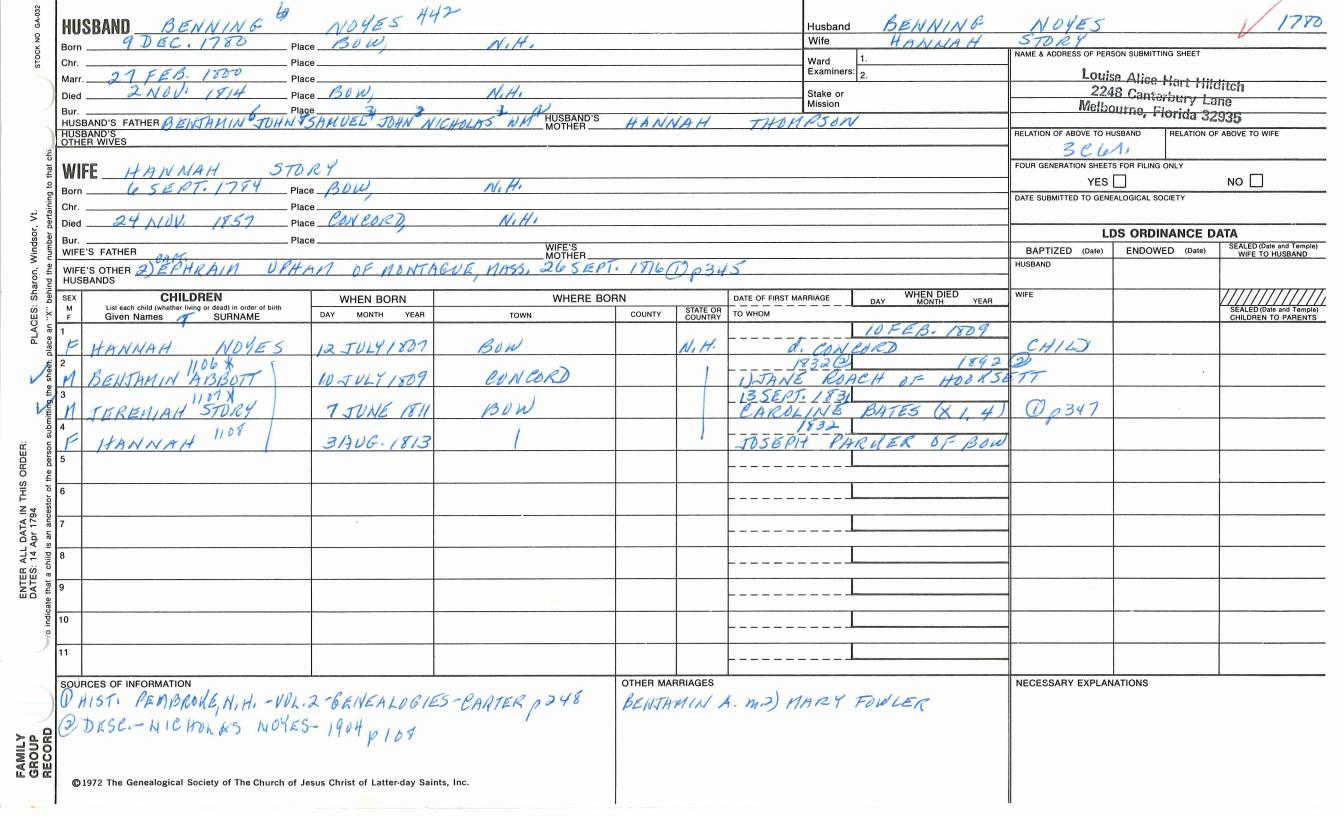 STOCK NO GA-032
HUSBAND BENNING NOYES 442
Born 9 DEC. 1780 Place BOW, N.H.
Chr. Place
Marr. 27 FEB. 1800 Place
Died 2 NOV. 1814 Place BOW, N.H.
Bur. Place
HUSBAND'S FATHER BENJAMIN 6 JOHN 5 SAMUEL 4 JOHN 3 NICHOLAS 2 WM 1 HUSBAND'S MOTHER HANNAH THOMPSON
HUSBAND'S OTHER WIVES
WIFE HANNAH STORY
Born 6 SEPT. 1784 Place BOW, N.H.
Chr. Place
Died 24 NOV. 1857 Place CONCORD, N.H.
Bur. Place
WIFE'S FATHER WIFE'S MOTHER
WIFE'S OTHER HUSBANDS 2) CAPT. EPHRAIM UPHAM OF MONTAGUE, MASS. 26 SEPT. 1816 ① p345
Husband BENNING NOYES 1780
Wife HANNAH STORY
Ward Examiners: 1.
2.
Stake or Mission
NAME & ADDRESS OF PERSON SUBMITTING SHEET
Louise Alice Hart Hilditch
2248 Cantarbury Lane
Melbourne, Florida 32935
RELATION OF ABOVE TO HUSBAND RELATION OF ABOVE TO WIFE
FOUR GENERATION SHEETS FOR FILING ONLY
YES NO
DATE SUBMITTED TO GENEALOGICAL SOCIETY
LDS ORDINANCE DATA
BAPTIZED (Date) ENDOWED (Date) SEALED (Date and Temple) WIFE TO HUSBAND
HUSBAND
WIFE
SEALED (Date and Temple) CHILDREN TO PARENTS
SEX M F CHILDREN WHEN BORN WHERE BORN DATE OF FIRST MARRIAGE WHEN DIED
List each child (whether living or dead) in order of birth
Given Names SURNAME DAY MONTH YEAR TOWN COUNTY STATE OR COUNTRY TO WHOM DAY MONTH YEAR
1 10 FEB. 1809
F HANNAH NOYES 12 JULY 1807 BOW N.H. d. CONCORD CHILD
2 1106 X 1832 ② 1892 ②
M BENJAMIN ABBOTT 10 JULY 1809 CONCORD 1) JANE ROACH OF HOOKSETT
3 1107 X 13 SEPT. 1831
M JEREMIAH STORY 7 JUNE 1811 BOW CAROLINE BATES (X 1, 4) ① p347
4 1108 1832
F HANNAH 3 AUG. 1813 JOSEPH PARKER OF BOW
5
6
7
8
9
10
11
SOURCES OF INFORMATION
① HIST. PEMBROKE, N.H. - VOL. 2 - GENEALOGIES - CARTER p 248
② DESC. - NICHOLAS NOYES - 1904 p 108
OTHER MARRIAGES
BENJAMIN A. m 2) MARY FOWLER
NECESSARY EXPLANATIONS
©1972 The Genealogical Society of The Church of Jesus Christ of Latter-day Saints, Inc.
FAMILY GROUP RECORD
ENTER ALL DATA IN THIS ORDER:
DATES: 14 Apr 1794
PLACES: Sharon, Windsor, Vt.
To indicate that a child is an ancestor of the person submitting the sheet, place an "X" behind the number pertaining to that